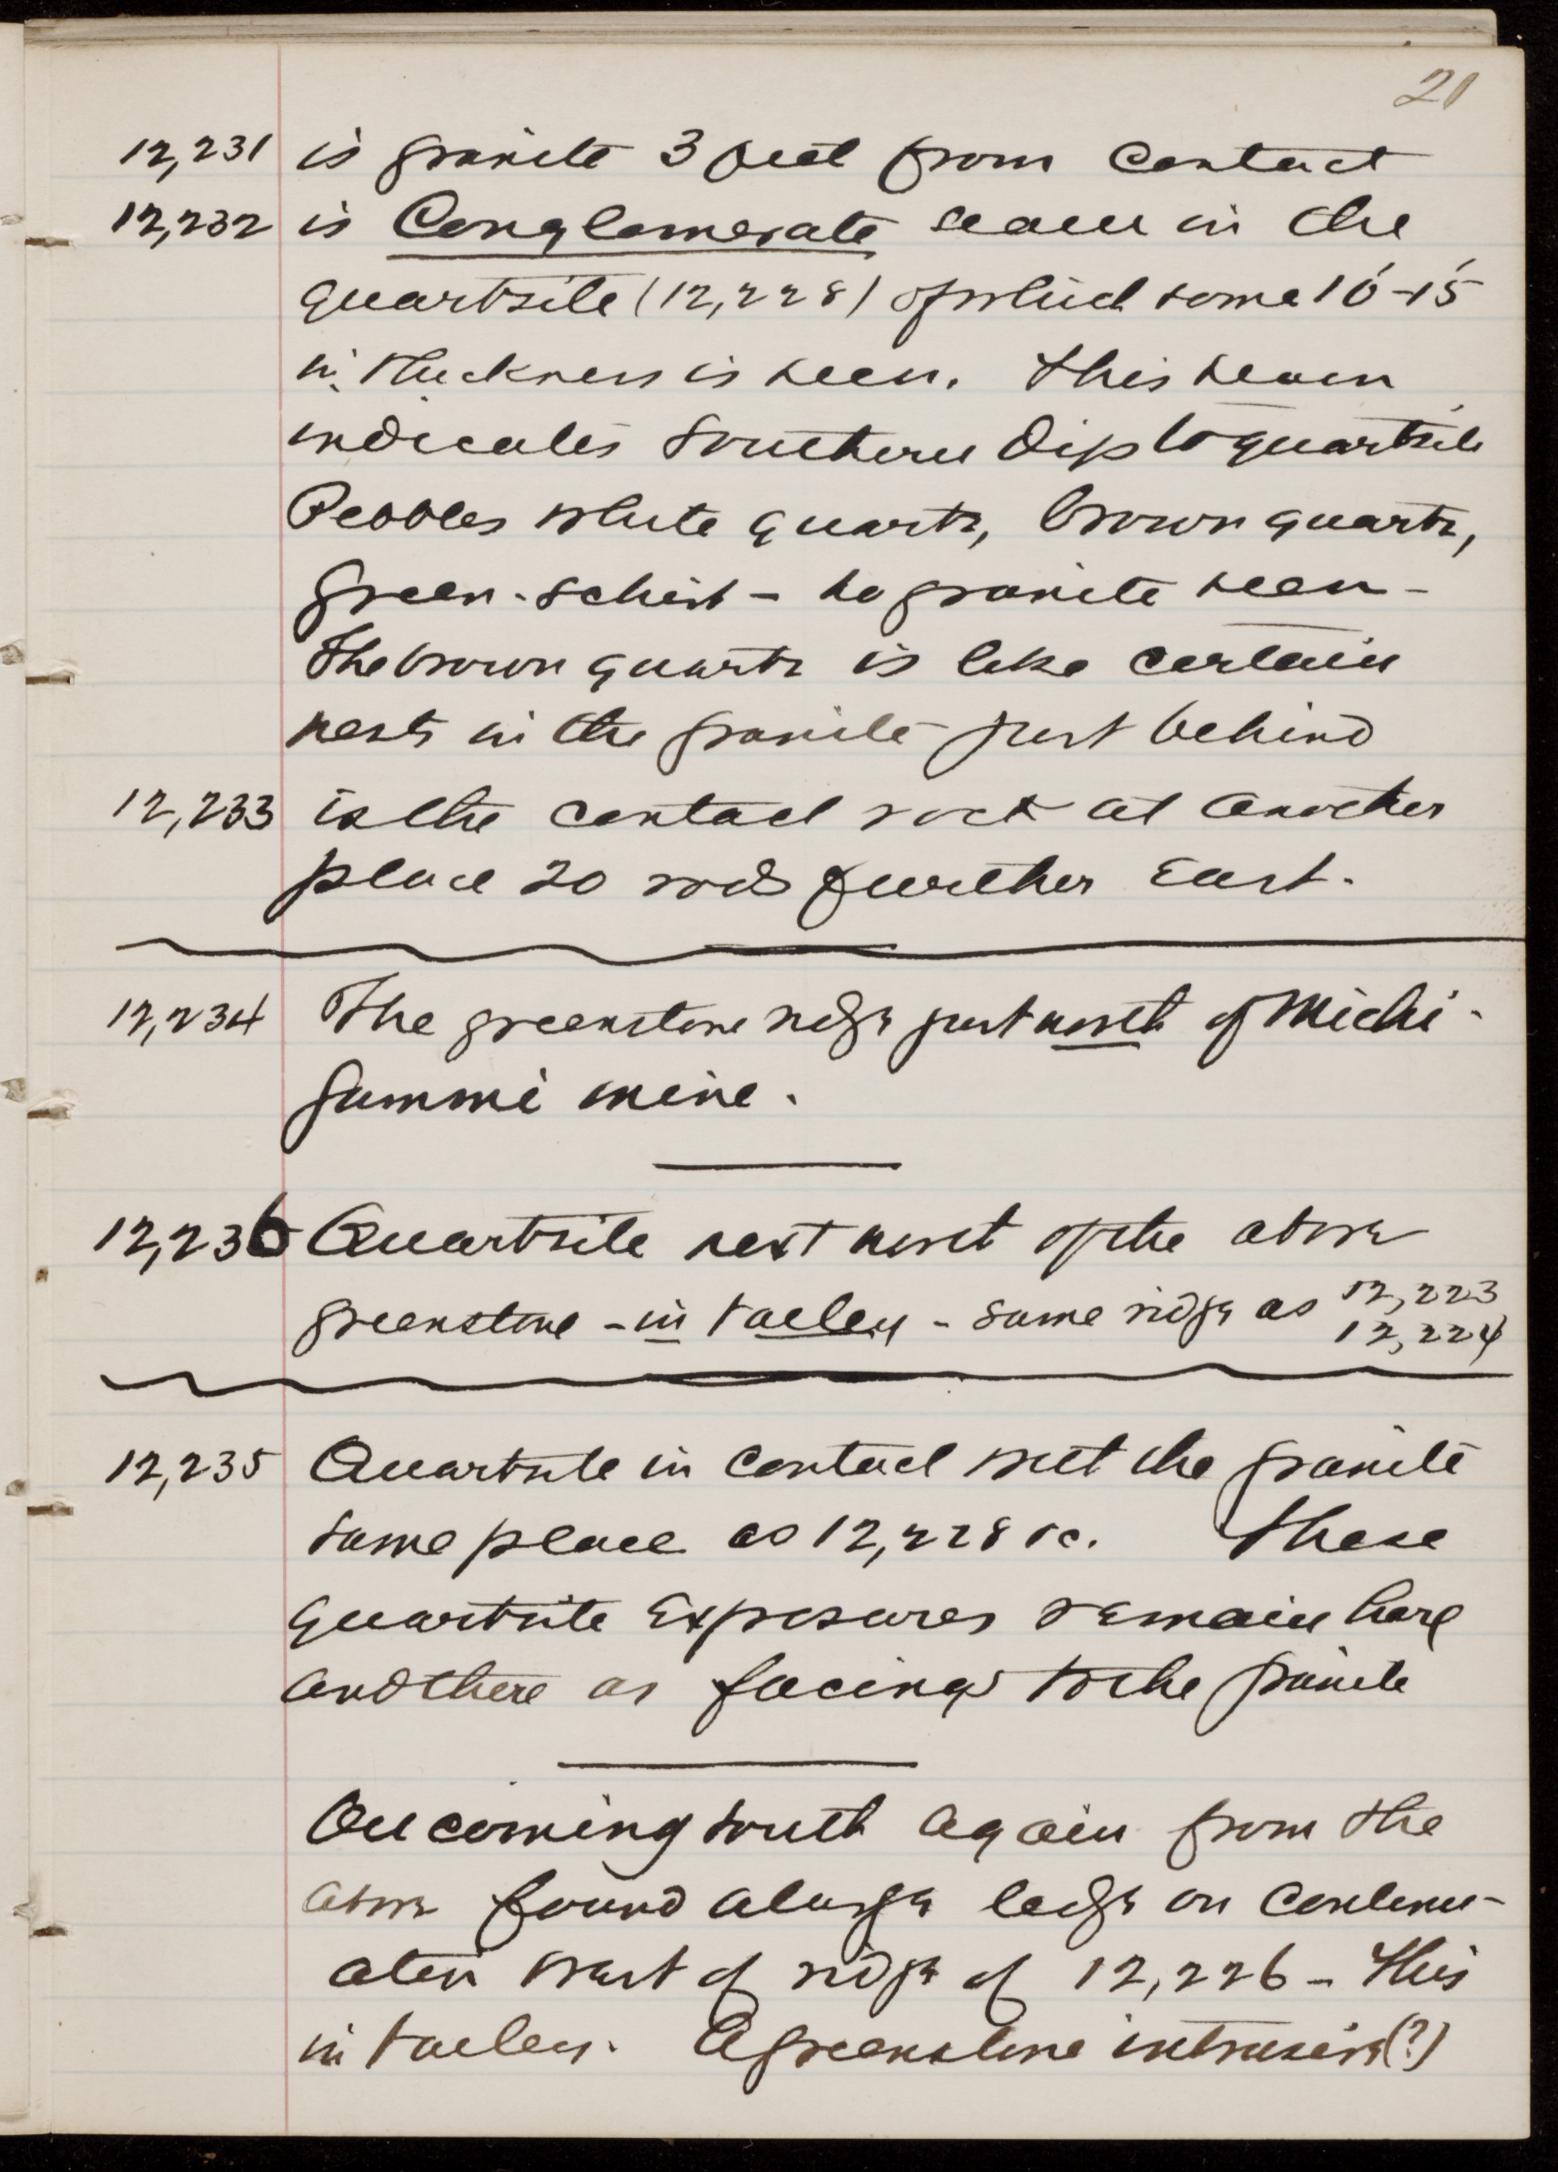 21
12,231 is granite 3 feet from contact
12,232 is Conglomerate seam in the
quartzite (12,228) of which some 10'-15'
in thickness is seen. This seam
indicates Southern Dip to quartzite
Pebbles white quartz, brown quartz,
green-schist - no granite seen -
The brown quartz is like certain
nests in the granite just behind
12,233 is the contact rock at another
place 20 rods further East.
12,234 The greenstone ridge just north of Michi-
gammi mine.
12,236 Quartzite next north of the above
greenstone - in valley - same ridge as 12,223
12,224
12,235 Quartzite in contact with the granite
same place as 12,228 &c. These
quartzite exposures remain here
and there as facings to the granite
On coming south again from the
above found a large ledge on continu-
ation west of ridge of 12,226 - this
in valley. A greenstone intrusive(?)